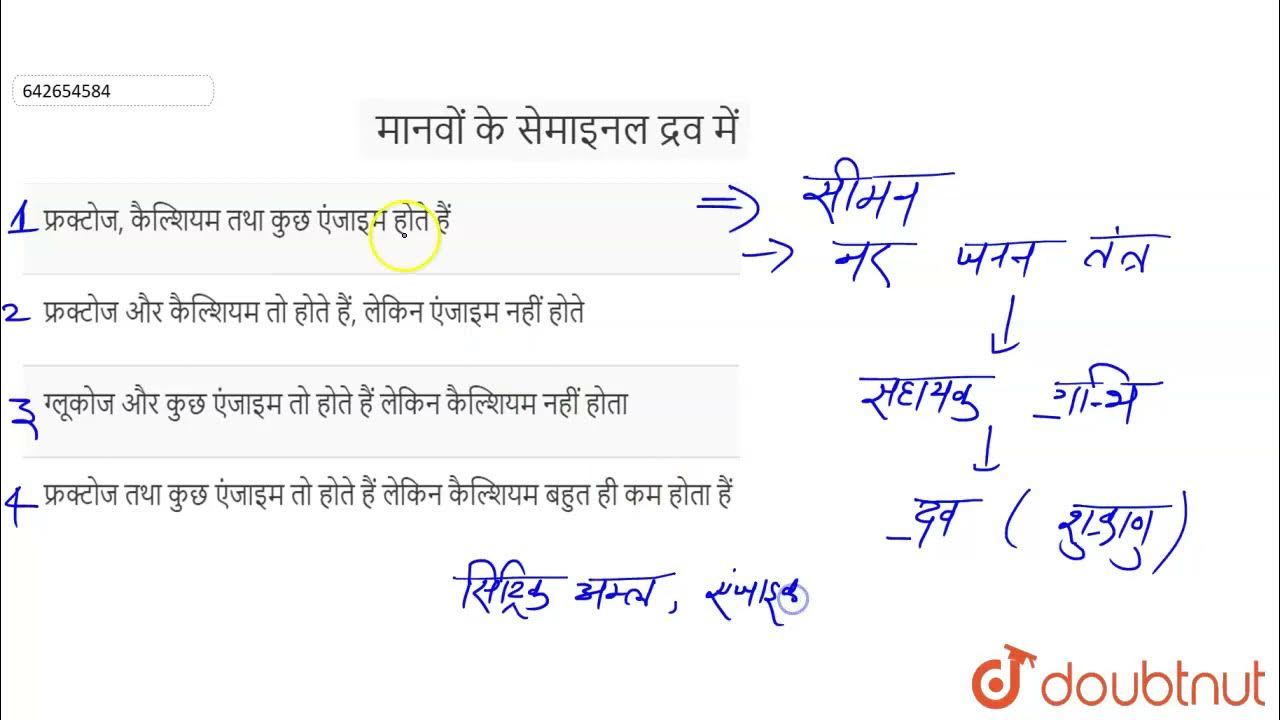 642654584
मानवों के सेमाइनल द्रव में
1 फ्रक्टोज, कैल्शियम तथा कुछ एंजाइम होते हैं
2 फ्रक्टोज और कैल्शियम तो होते हैं, लेकिन एंजाइम नहीं होते
3 ग्लूकोज और कुछ एंजाइम तो होते हैं लेकिन कैल्शियम नहीं होता
4 फ्रक्टोज तथा कुछ एंजाइम तो होते हैं लेकिन कैल्शियम बहुत ही कम होता हैं
⇒ सीमन
→ नर जनन तंत्र
↓
सहायक ग्रान्थि
↓
द्रव ( शुक्राणु )
सिट्रिक अम्ल,
doubtnut